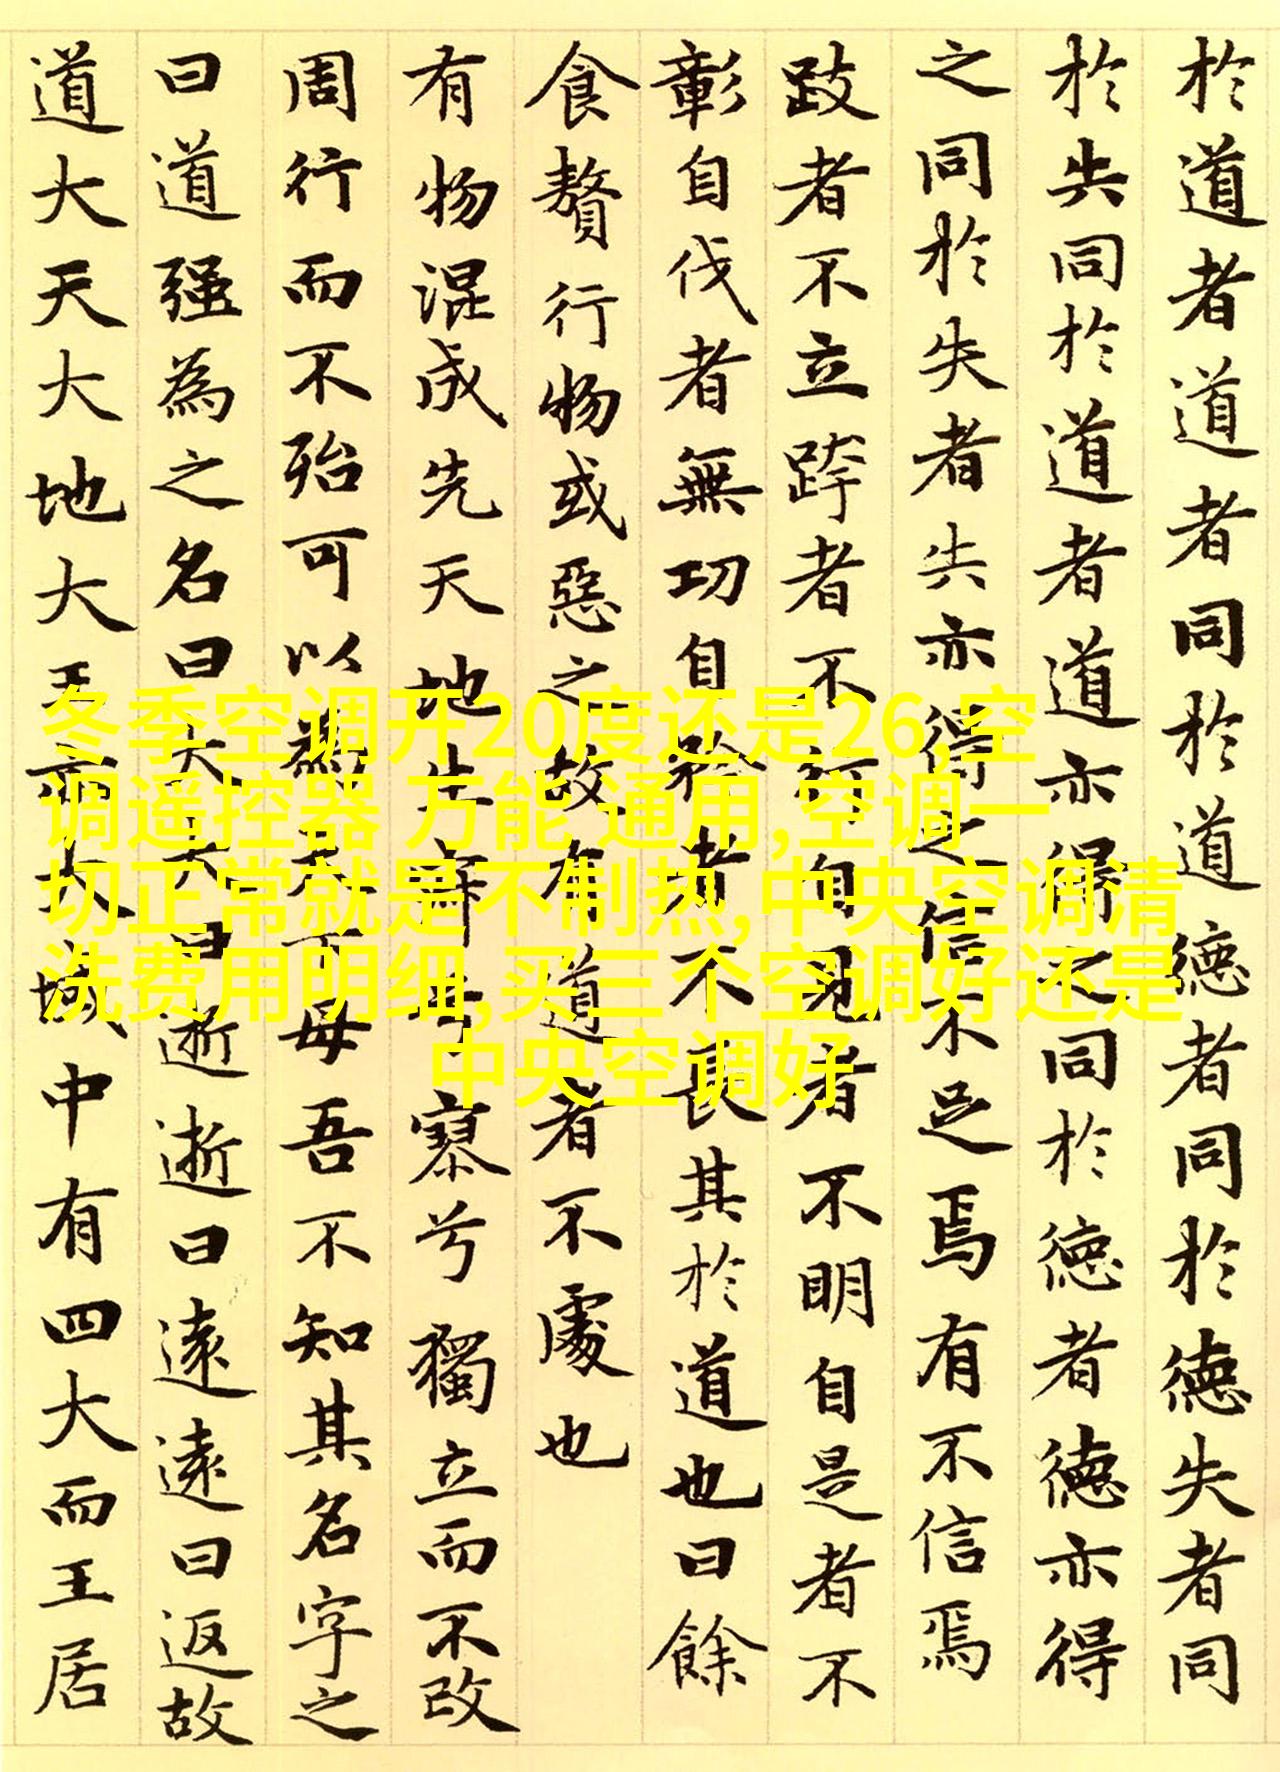 於道者道者同於道德者同於德失者同
於失同於道者道亦得之同於德者德亦得
之同於失者失亦得之信不足焉有不信焉
跂者不立跨者不行自見者不明自是者不
彰自伐者無功自矜者不長其於道也曰餘
食贅行物或惡之故有道者不處也
有物混成先天地生寂兮寥兮獨立而不改
周行而不殆可以為天下母吾不知其名字之
曰道强為之名曰大大曰逝逝曰遠遠曰返故
道大天大地大王亦大域中有四大而王居
冬季空调开20度还是26,空
调遥控器 万能 通用,空调一
切正常就是不制热,中央空调清
洗费用明细,买三个空调好还是
中央空调好